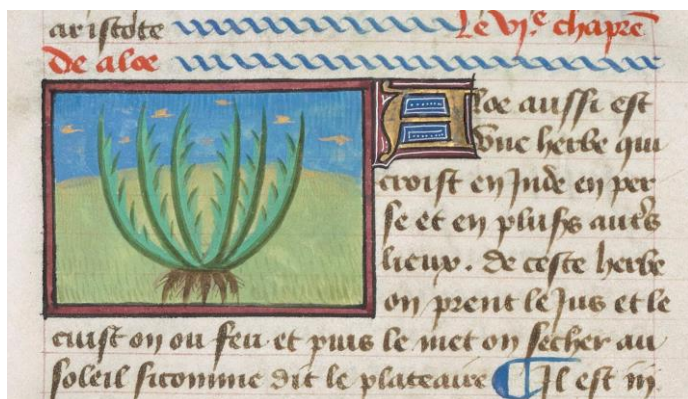 aristote Le vi.e chapr̄e
de aloe
Aloe aussi est
vne herbe qui
croist en Jnde en per
se et en plus̄s aut̄s
lieux. de ceste herbe
on prent le Jus et le
cuist on ou feu et puis le met on secher au
soleil sicomme dit le plateaire Jl est iij